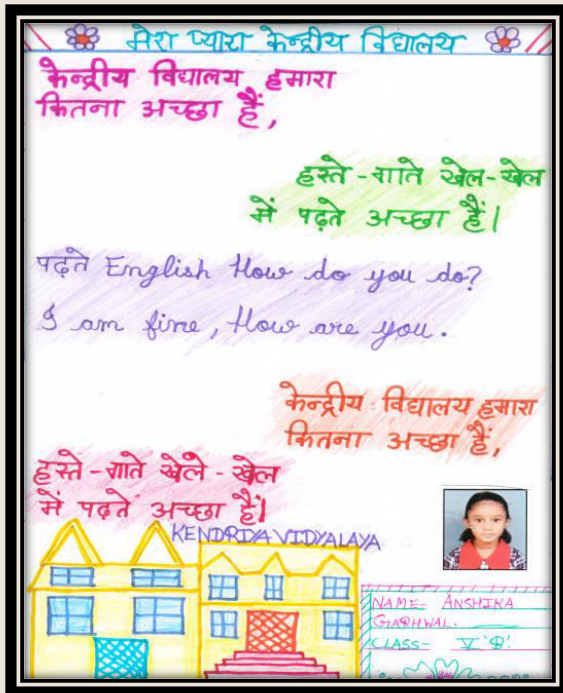 मेरा प्यारा केन्द्रीय विद्यालय
केन्द्रीय विद्यालय हमारा
कितना अच्छा हैं,
हस्ते-गाते खेल-खेल
में पढ़ते अच्छा हैं।
पढ़ते English How do you do?
I am fine, How are you.
केन्द्रीय विद्यालय हमारा
कितना अच्छा हैं,
हस्ते-गाते खेले-खेल
में पढ़ते अच्छा हैं।
KENDRIYA VIDYALAYA
NAME- ANSHIKA
GARHWAL.
CLASS- V